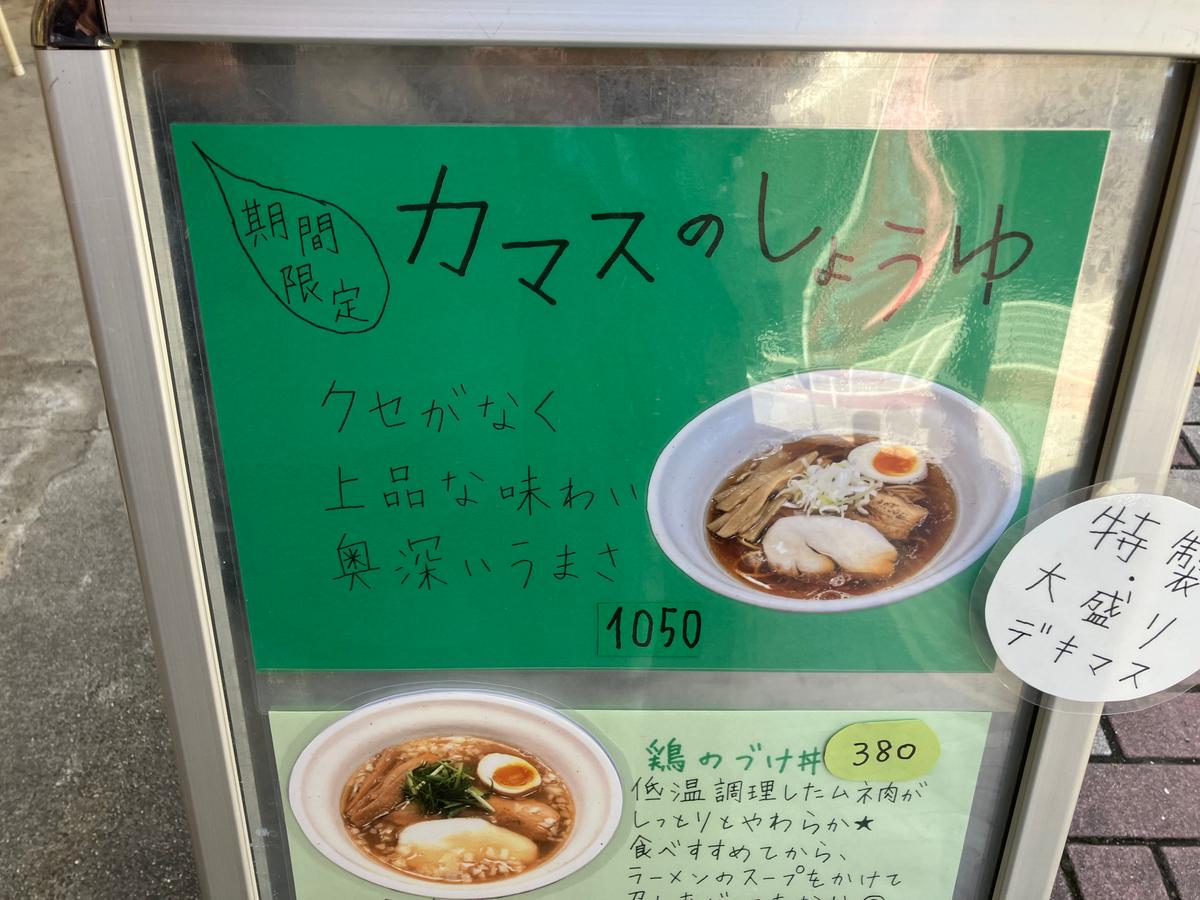 期間
限定
カマスのしょうゆ
クセがなく
上品な味わい
奥深いうまさ
1050
特製
・
大盛り
デキマス
鶏のづけ丼
380
低温調理したムネ肉が
しっとりとやわらか★
食べすすめてから、
ラーメンのスープをかけて